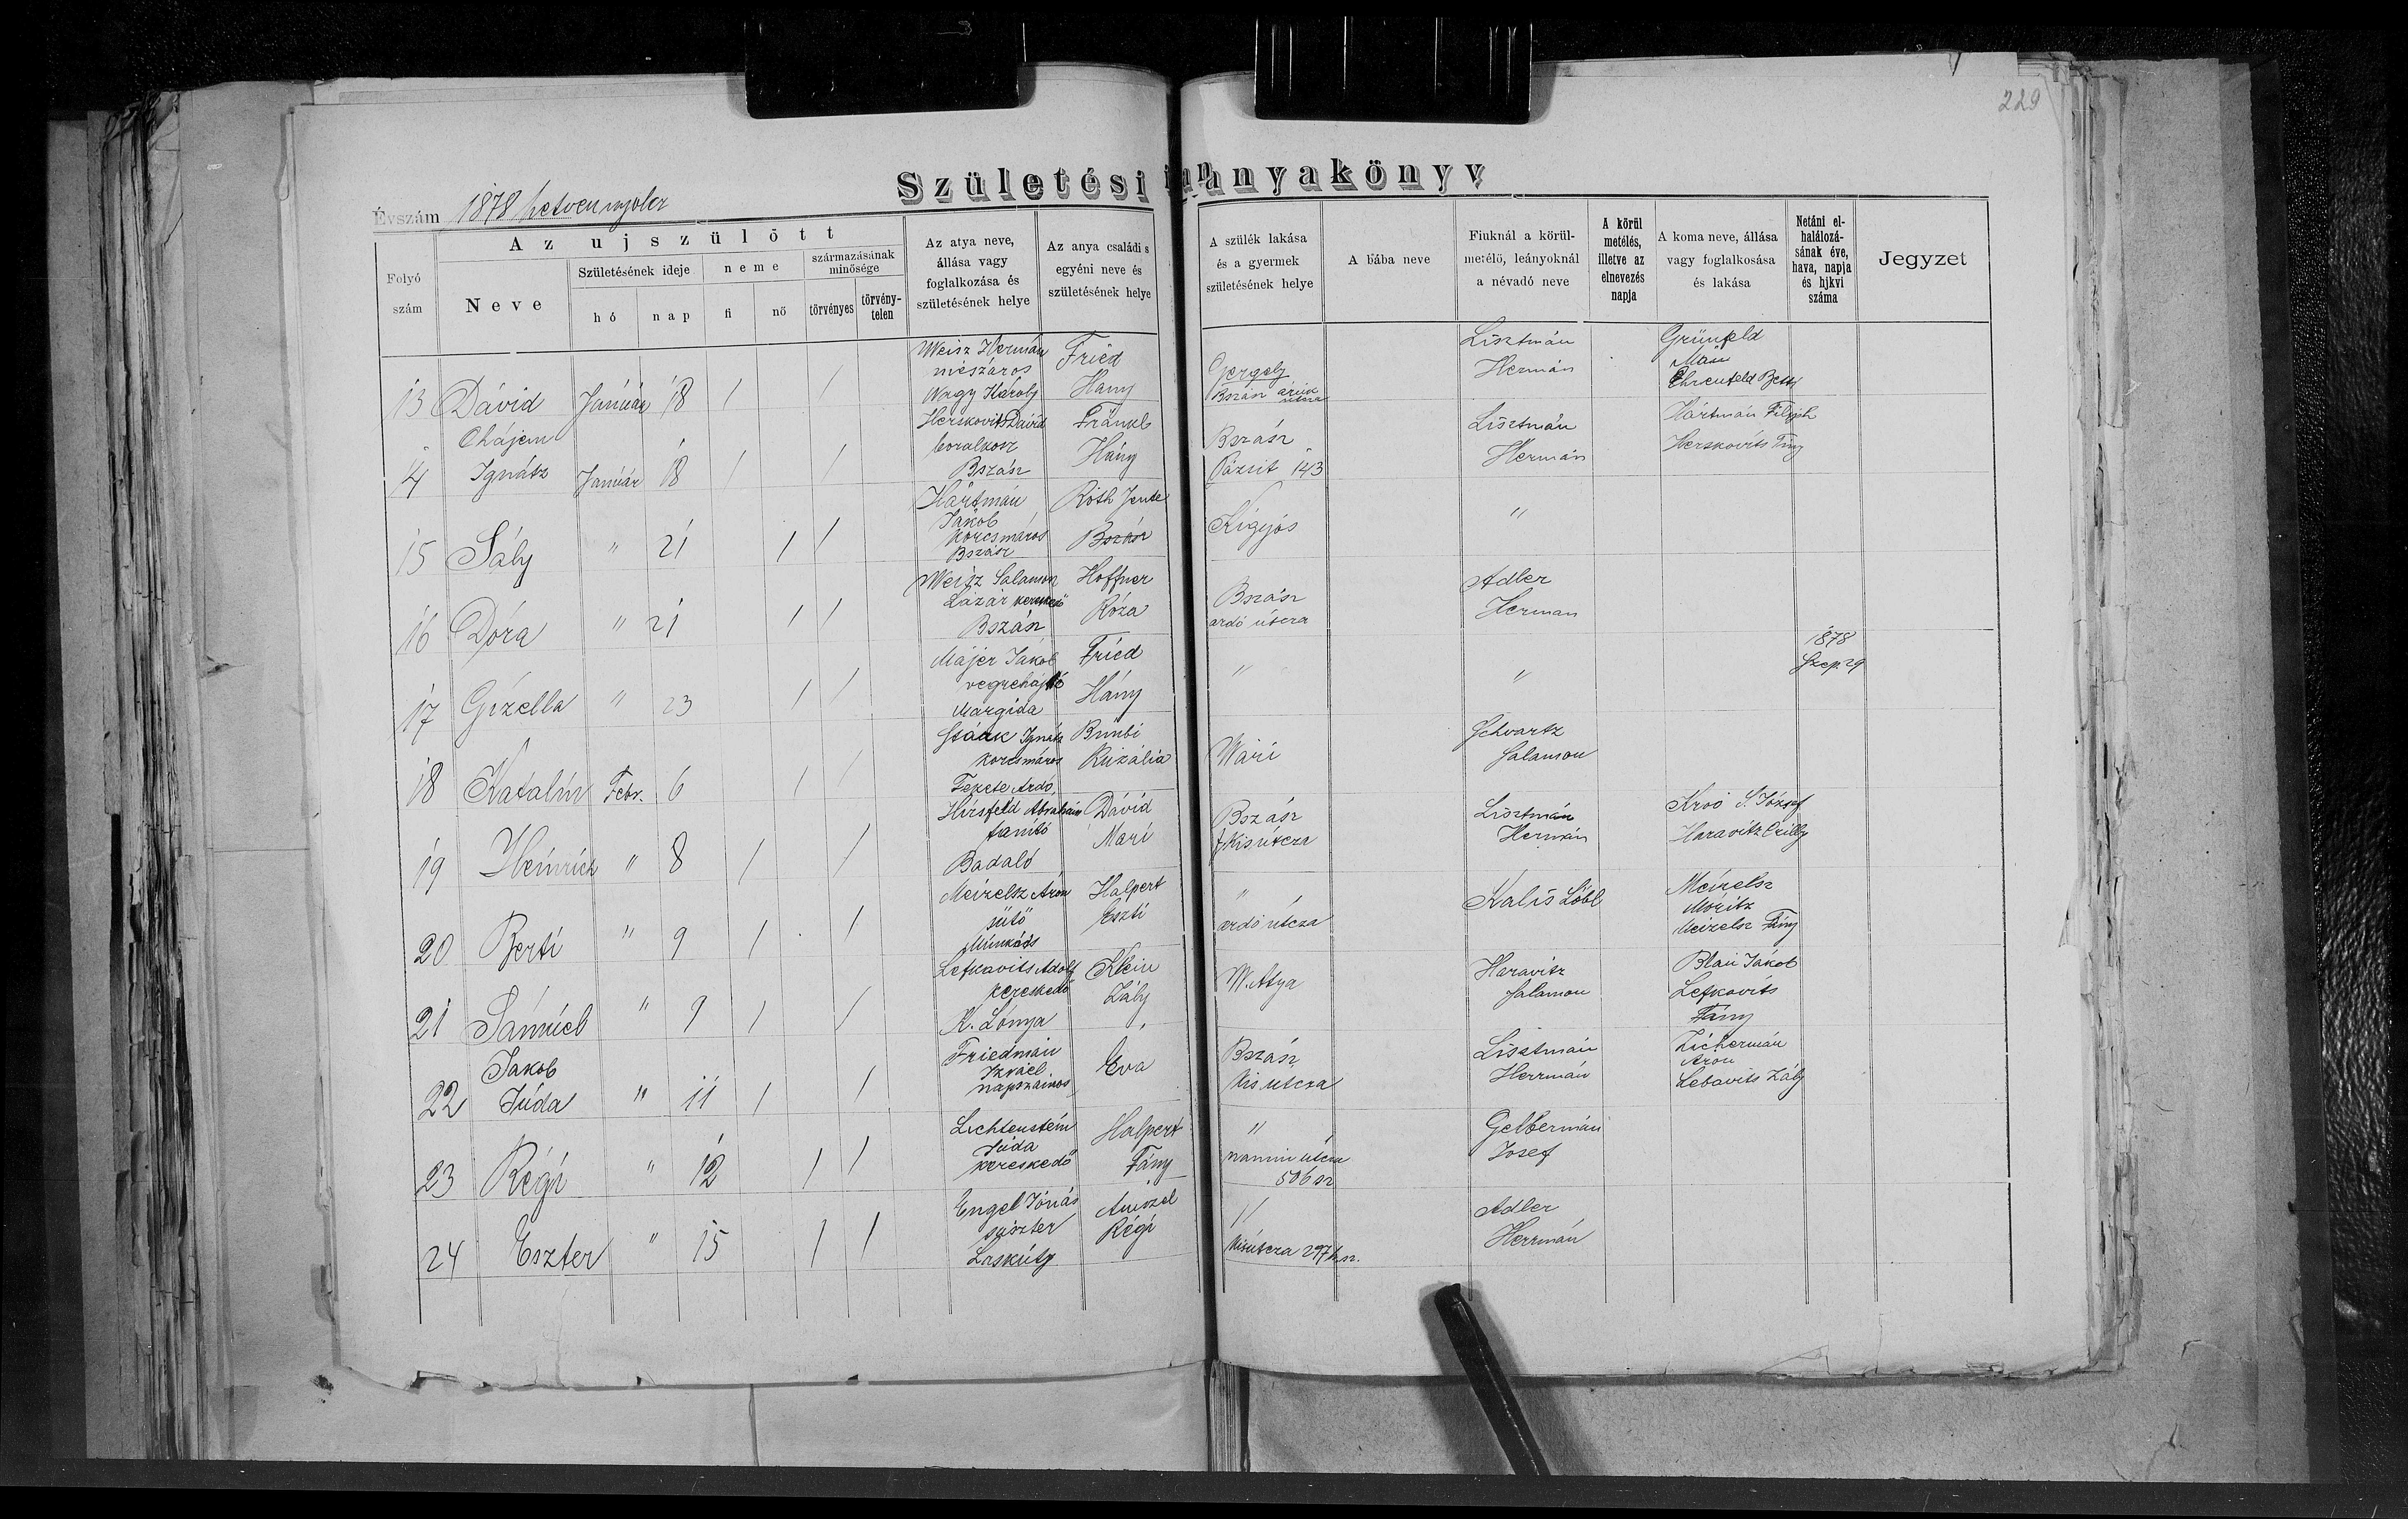 229
Születési anyakönyv
Évszám 1878 hetvennyolcz
Az ujszülött
Folyó szám
Neve
Születésének ideje
hó
nap
neme
fi
nő
származásának minősége
törvényes
törvény-telen
Az atya neve, állása vagy foglalkozása és születésének helye
Az anya családi s egyéni neve és születésének helye
A szülék lakása és a gyermek születésének helye
A bába neve
Fiuknál a körül-metélő, leányoknál a névadó neve
A körül metélés, illetve az elnevezés napja
A koma neve, állása vagy foglalkosása és lakása
Netáni el-halálozá-sának éve, hava, napja és hjkvi száma
Jegyzet
13 Dávid Január 18 / / Weisz Hermán mészáros Nagy Károly Fried Hany Gergely Bszász utcza Lisztmán Hermán Grünfeld Mari Ehrenfeld Betty
4 Chájem Ignátz Január 18 / / Herskovits Dávid Bszász Fränkl Hány Bszász Pázsit 143 Lisztmán Hermán Hártmán Herskovits Fány
15 Sály " 21 / / Hártmán Jakob korcsmáros Bszász Róth Jente Bszász Kígyós "
16 Dóra " 21 / / Weisz Salamon Lázár kereskedő Bszász Hoffner Róza Bszász ardó útcza Adler Herman
17 Gizella " 23 / / Májer Jakob végrehajtó Margida Fried Hány " " 1878 Szep. 29
18 Katalin Febr. 6 / / Ignátz korcsmáros Fekete Ardó. Rúzália Wári Schvartz Salamon
19 Heinrich " 8 / / Hirsfeld Abraham tanító Badaló Dávid Mari Bszász Kisútcza Lisztmán Hermán Kroó S. József Haravitz Czilly
20 Berti " 9 / / Meizelsz Áron sütő Munkács Halpert Eszti " ardó útcza Kalis Löbl Meizelsz Móritz Meizelsz Fány
21 Sámúel " 9 / / Lefkavits Adolf kereskedő K. Lónya Klein Zály W. Atya Haravitz Salamon Blau Jakob Lefkovits Fány
22 Jakob Júda " 11 / / Friedmán Izráel napszámos Éva Bszász Kis útcza Lisztmán Herrmán Zichermán Áron Lebavits Zály
23 Régi " 12 / / Lichtenstein Júda kereskedő Halpert Fány " útcza 506 sz Gelbermán Josef
24 Eszter " 15 / / Engel Jónás suszter Régi " Kisútcza 297 h sz. Adler Herrmán